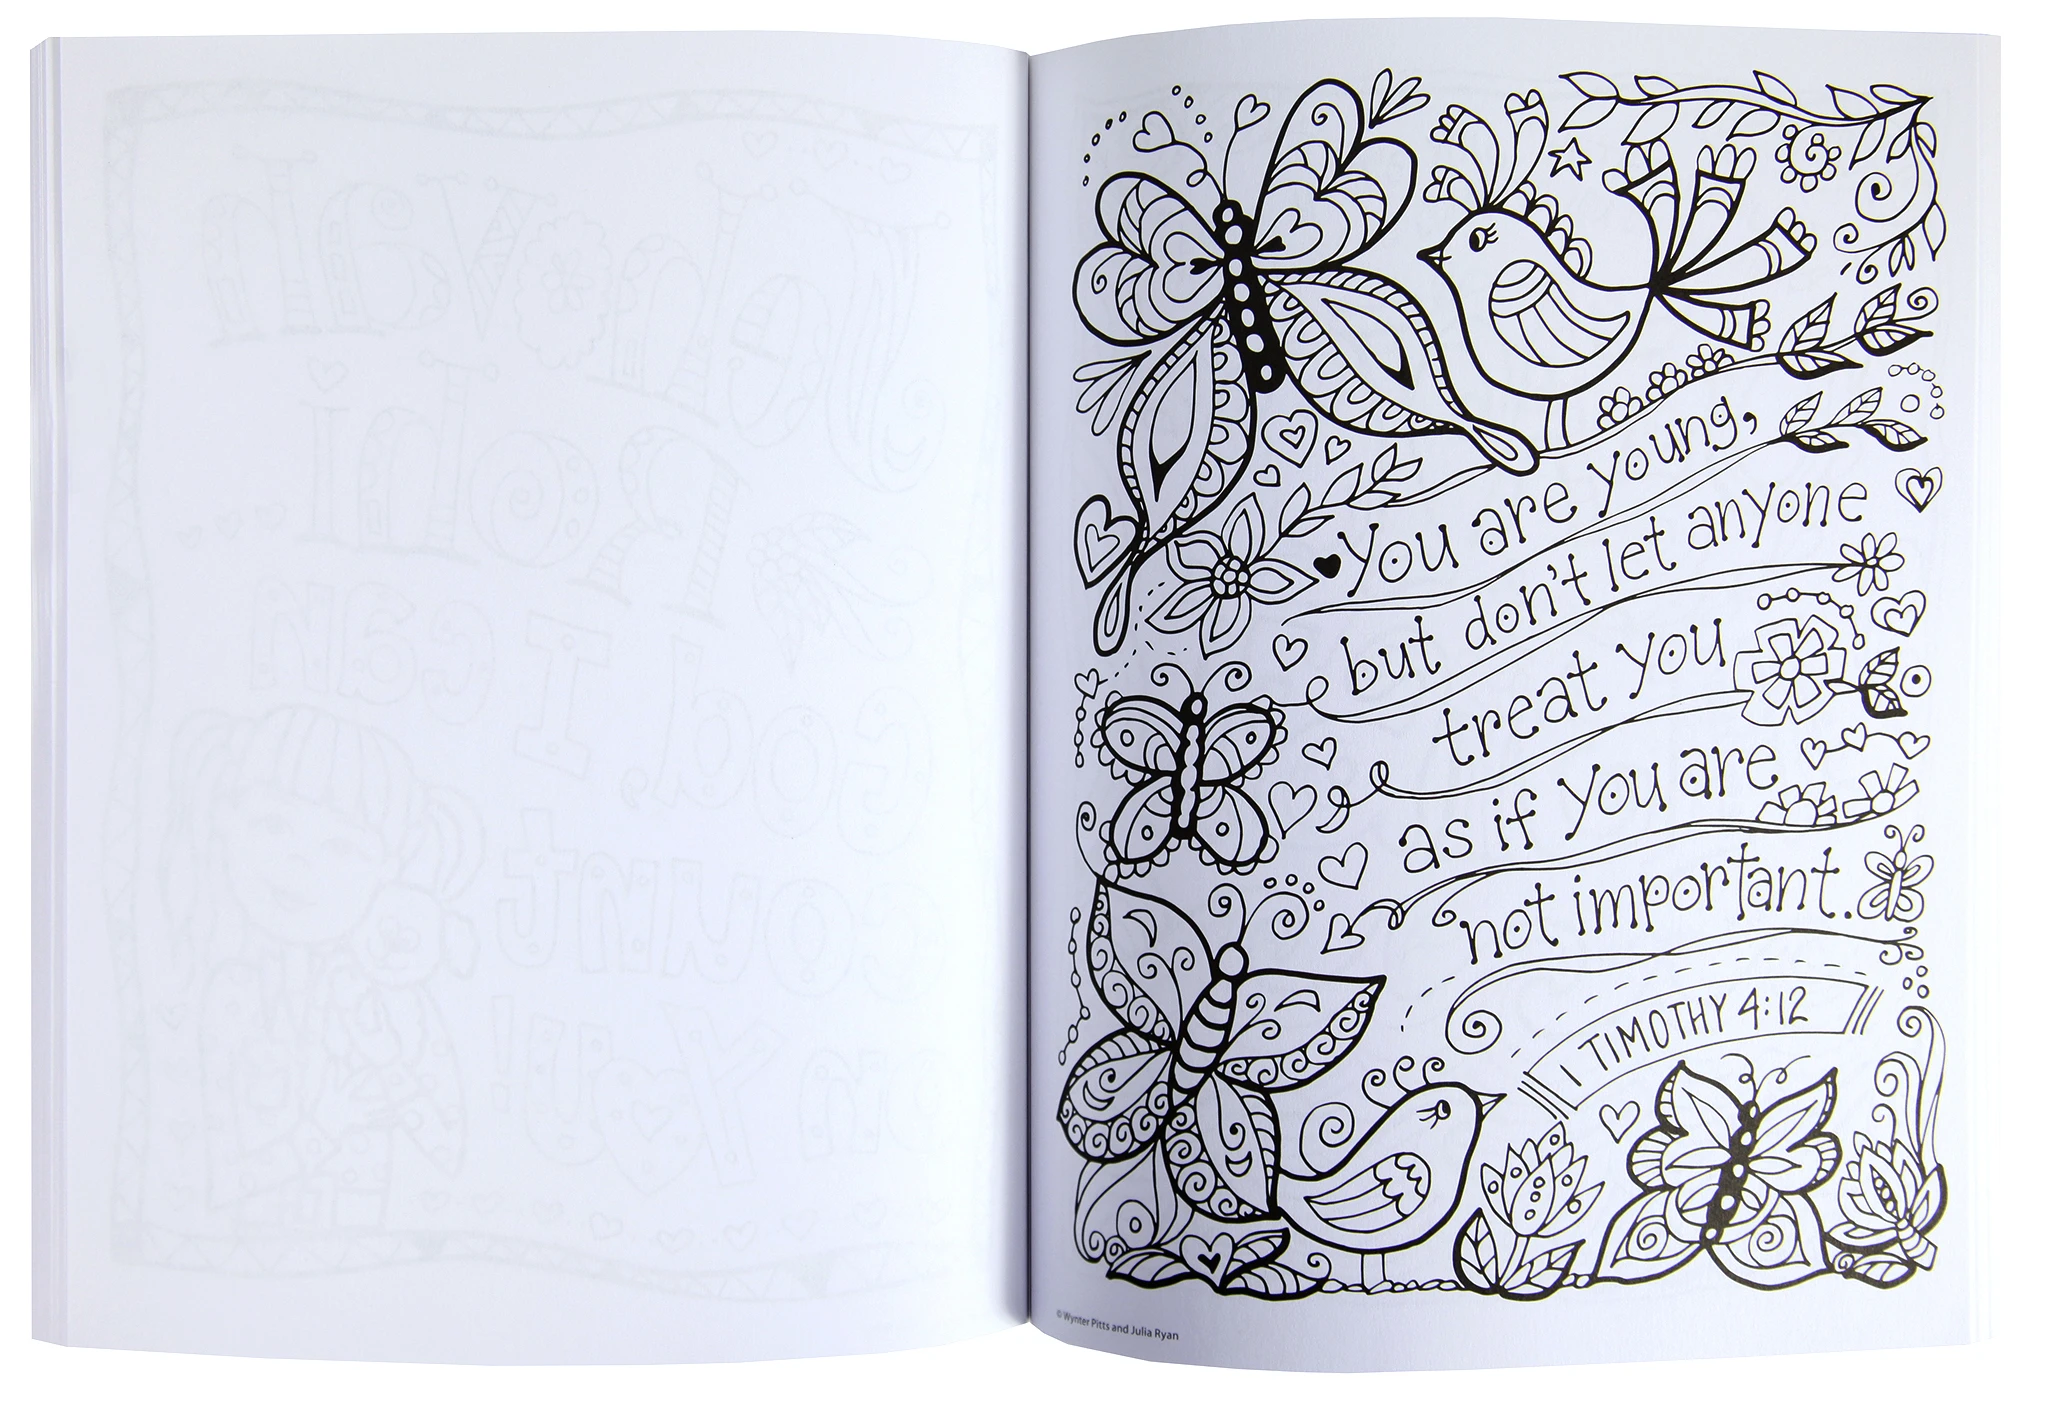 You are young,
but don't let anyone
treat you
as if you are
not important.
1 TIMOTHY 4:12
© Wynter Pitts and Julia Ryan